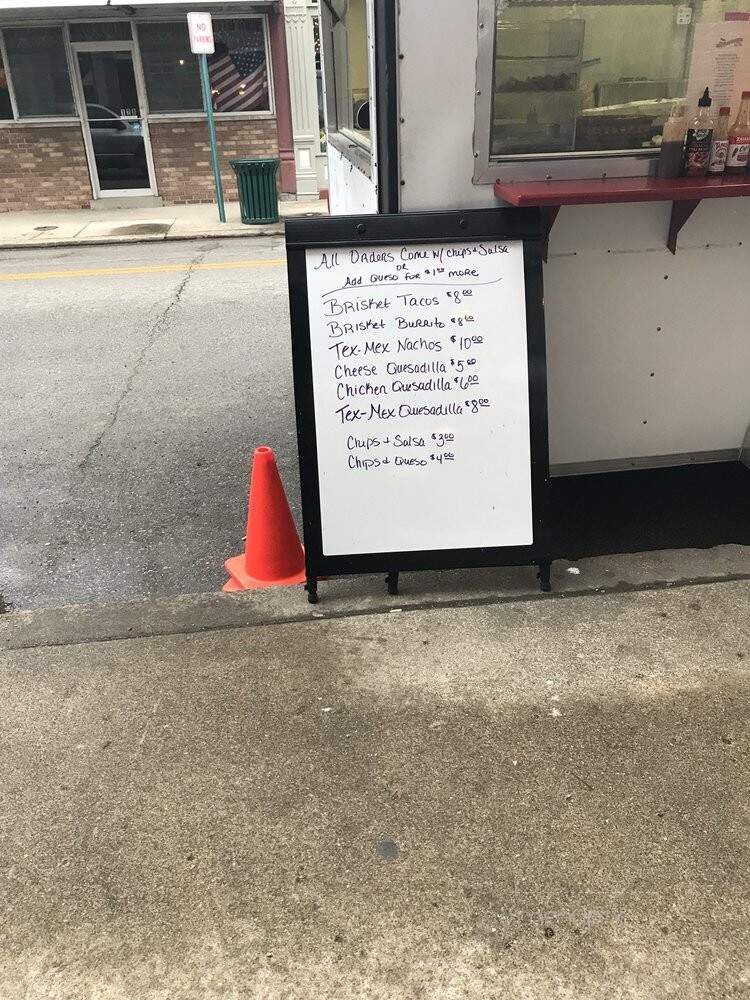 NO
PARKING
171
All Orders Come w/ chips + Salsa
OR
Add Queso for $1.00 more
Brisket Tacos $8.00
Brisket Burrito $8.00
Tex-Mex Nachos $10.00
Cheese Quesadilla $5.00
Chicken Quesadilla $6.00
Tex-Mex Quesadilla $8.00
Chips + Salsa $3.00
Chips + Queso $4.00